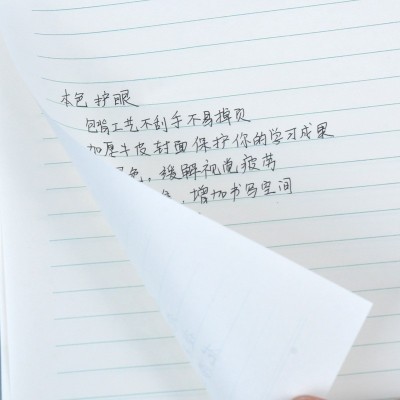 本色护眼
包背工艺不刮手不易掉页
加厚牛皮封面保护你的学习成果
色，缓解视觉疲劳
，增加书写空间